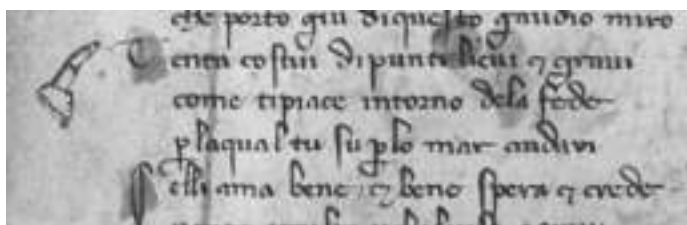 che porto giu di questo gaudio miro
Tenta costui di punti lieui ⁊ graui
come ti piace intorno dela fede
p laqual tu su p lo mar andaui
Selli ama bene ⁊ bene spera ⁊ crede